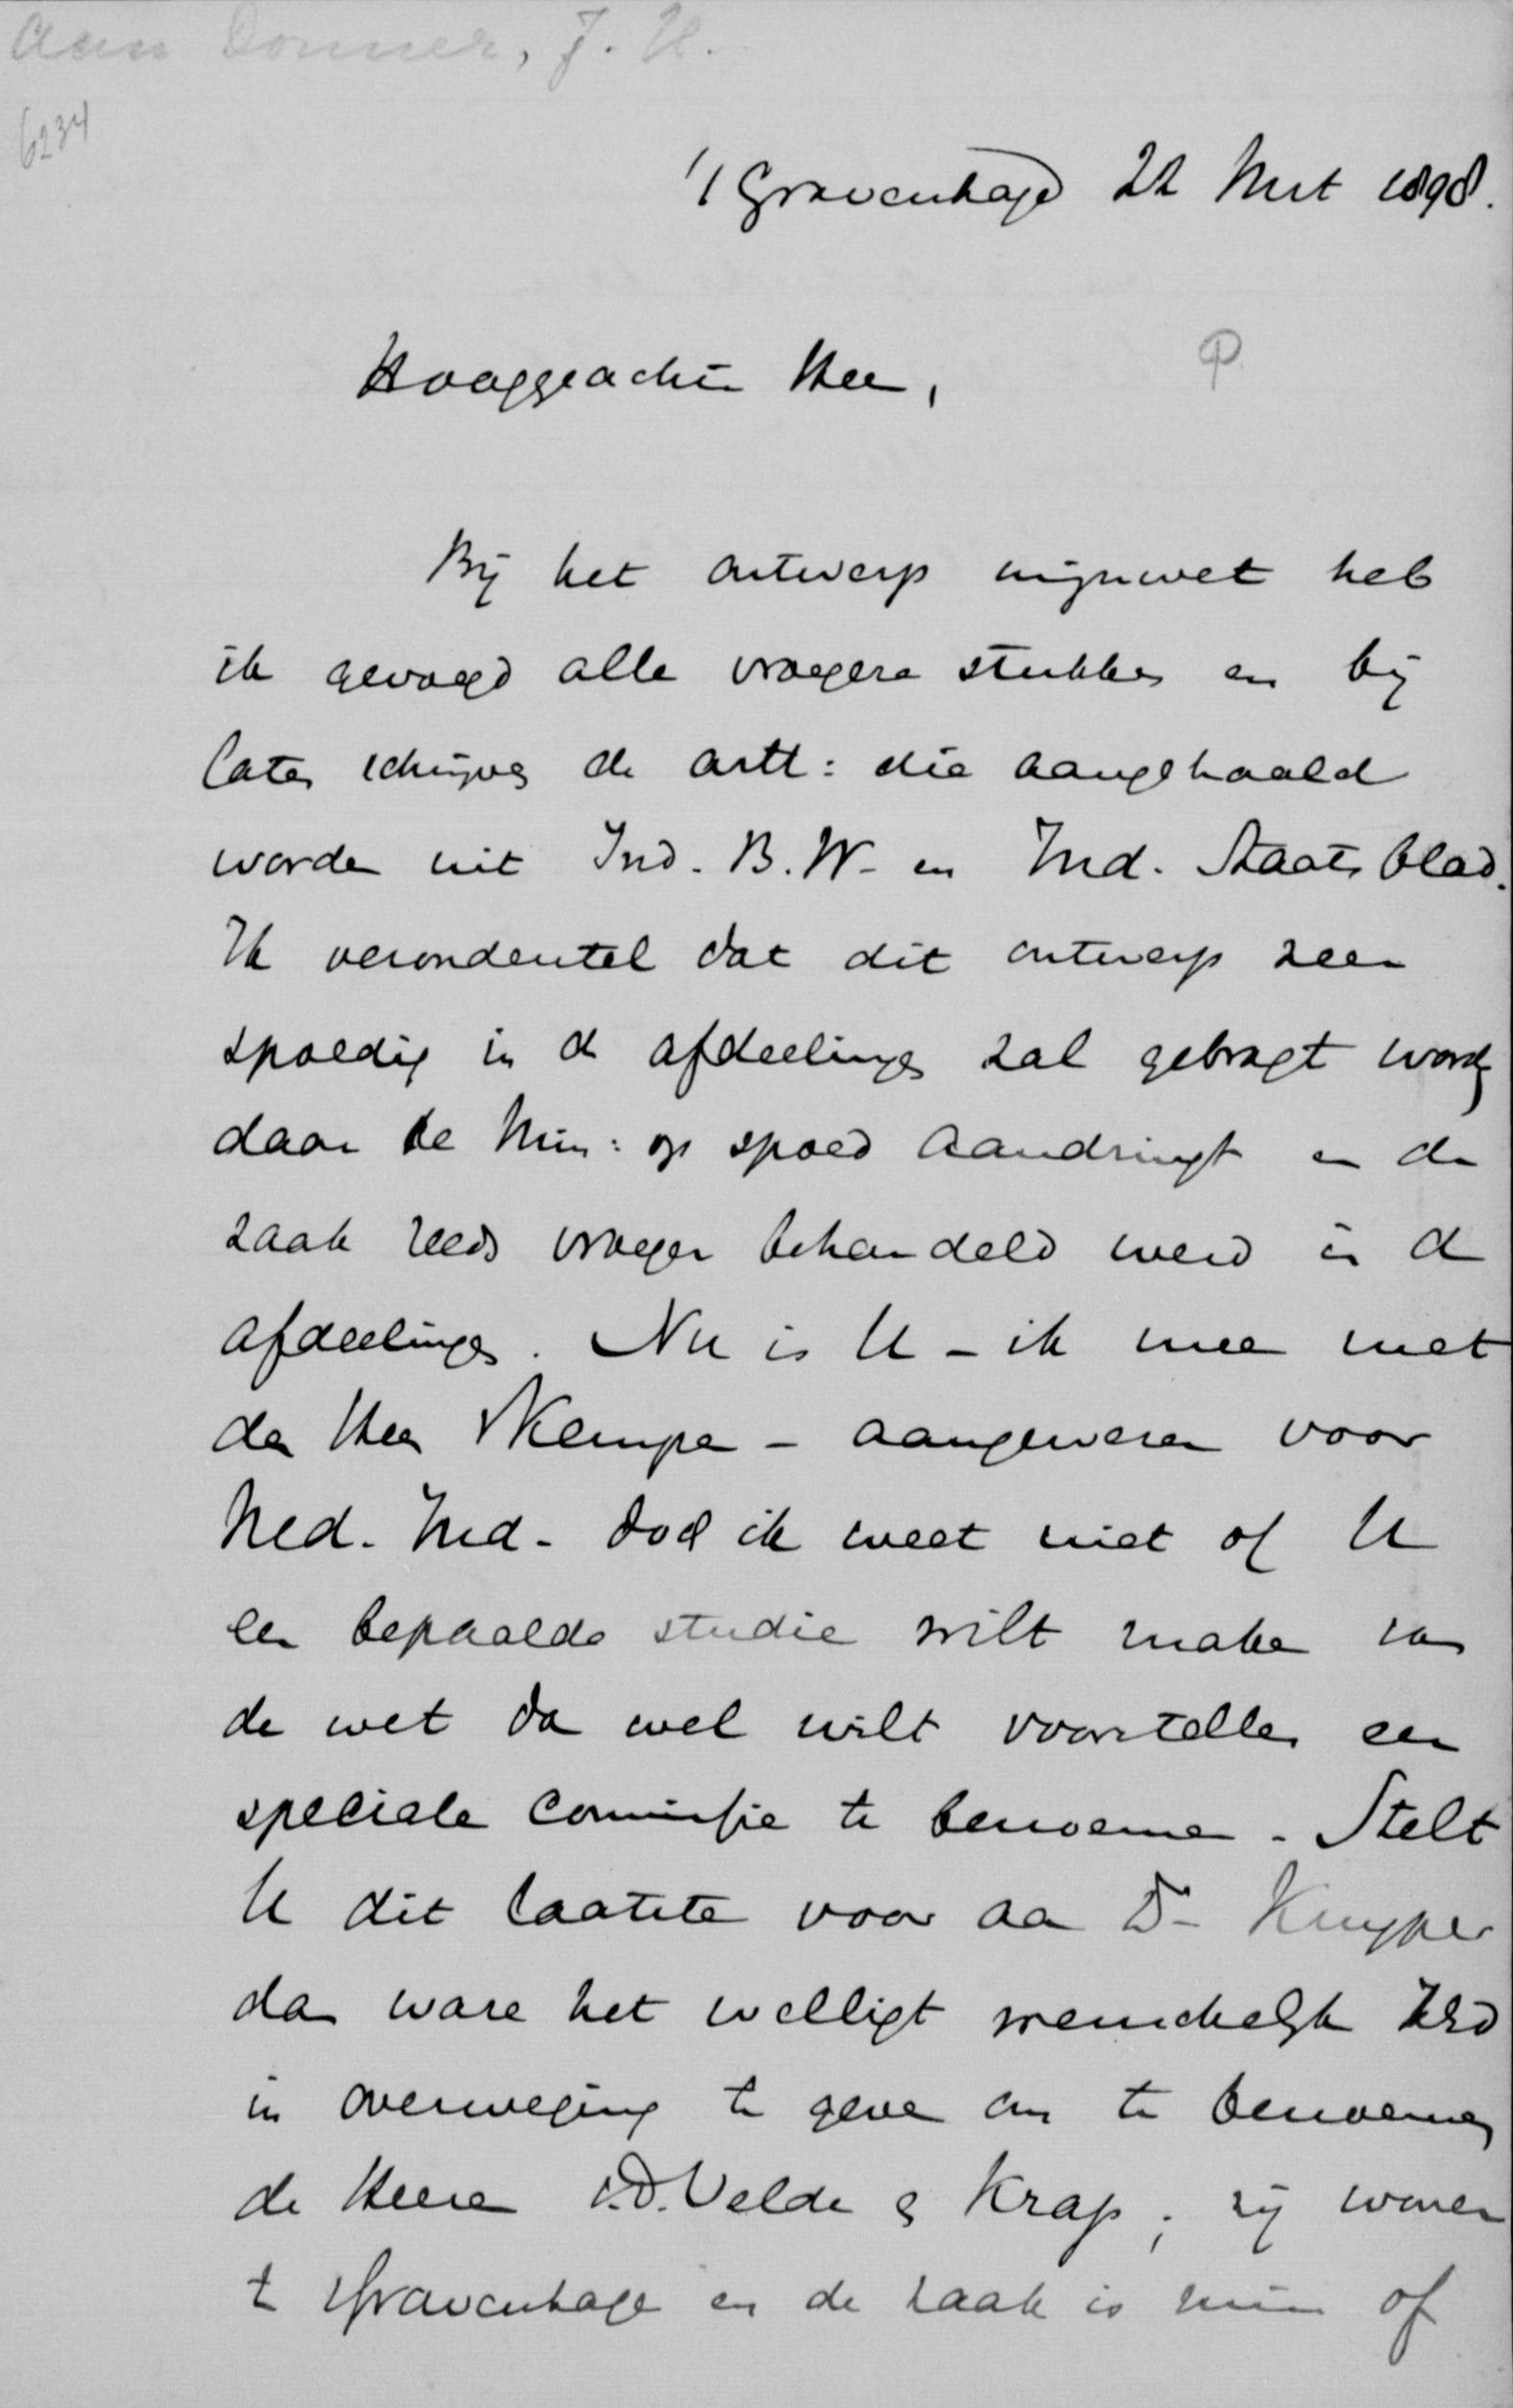 Aan Donner, J. H.
6234
's Gravenhage 22 Mrt 1898.
Hooggeachte Heer,
Bij het ontwerp mijnwet heb
ik gevoegd alle vroegere stukken en bij
laten schrijven de artt: die aangehaald
worden uit Ind. B.W. en Ind. Staatsblad.
Ik veronderstel dat dit ontwerp zeer
spoedig in de afdeelingen zal gebragt worden
daar de Min: op spoed aandringt en de
zaak reeds vroeger behandeld werd in de
afdeelingen. Nu is U - ik meen met
den Heer Kempe - aangewezen voor
Ned. Ind. doch ik weet niet of U
een bepaalde studie wilt maken van
de wet dan wel wilt voorstellen een
speciale commissie te benoemen. Stelt
U dit laatste voor aan Dr Kuyper
dan ware het welligt wenschelijk ZEd
in overweging te geven om te benoemen
de Heeren v.d. Velde & Krap; zij wonen
te 'sGravenhage en de zaak is min of